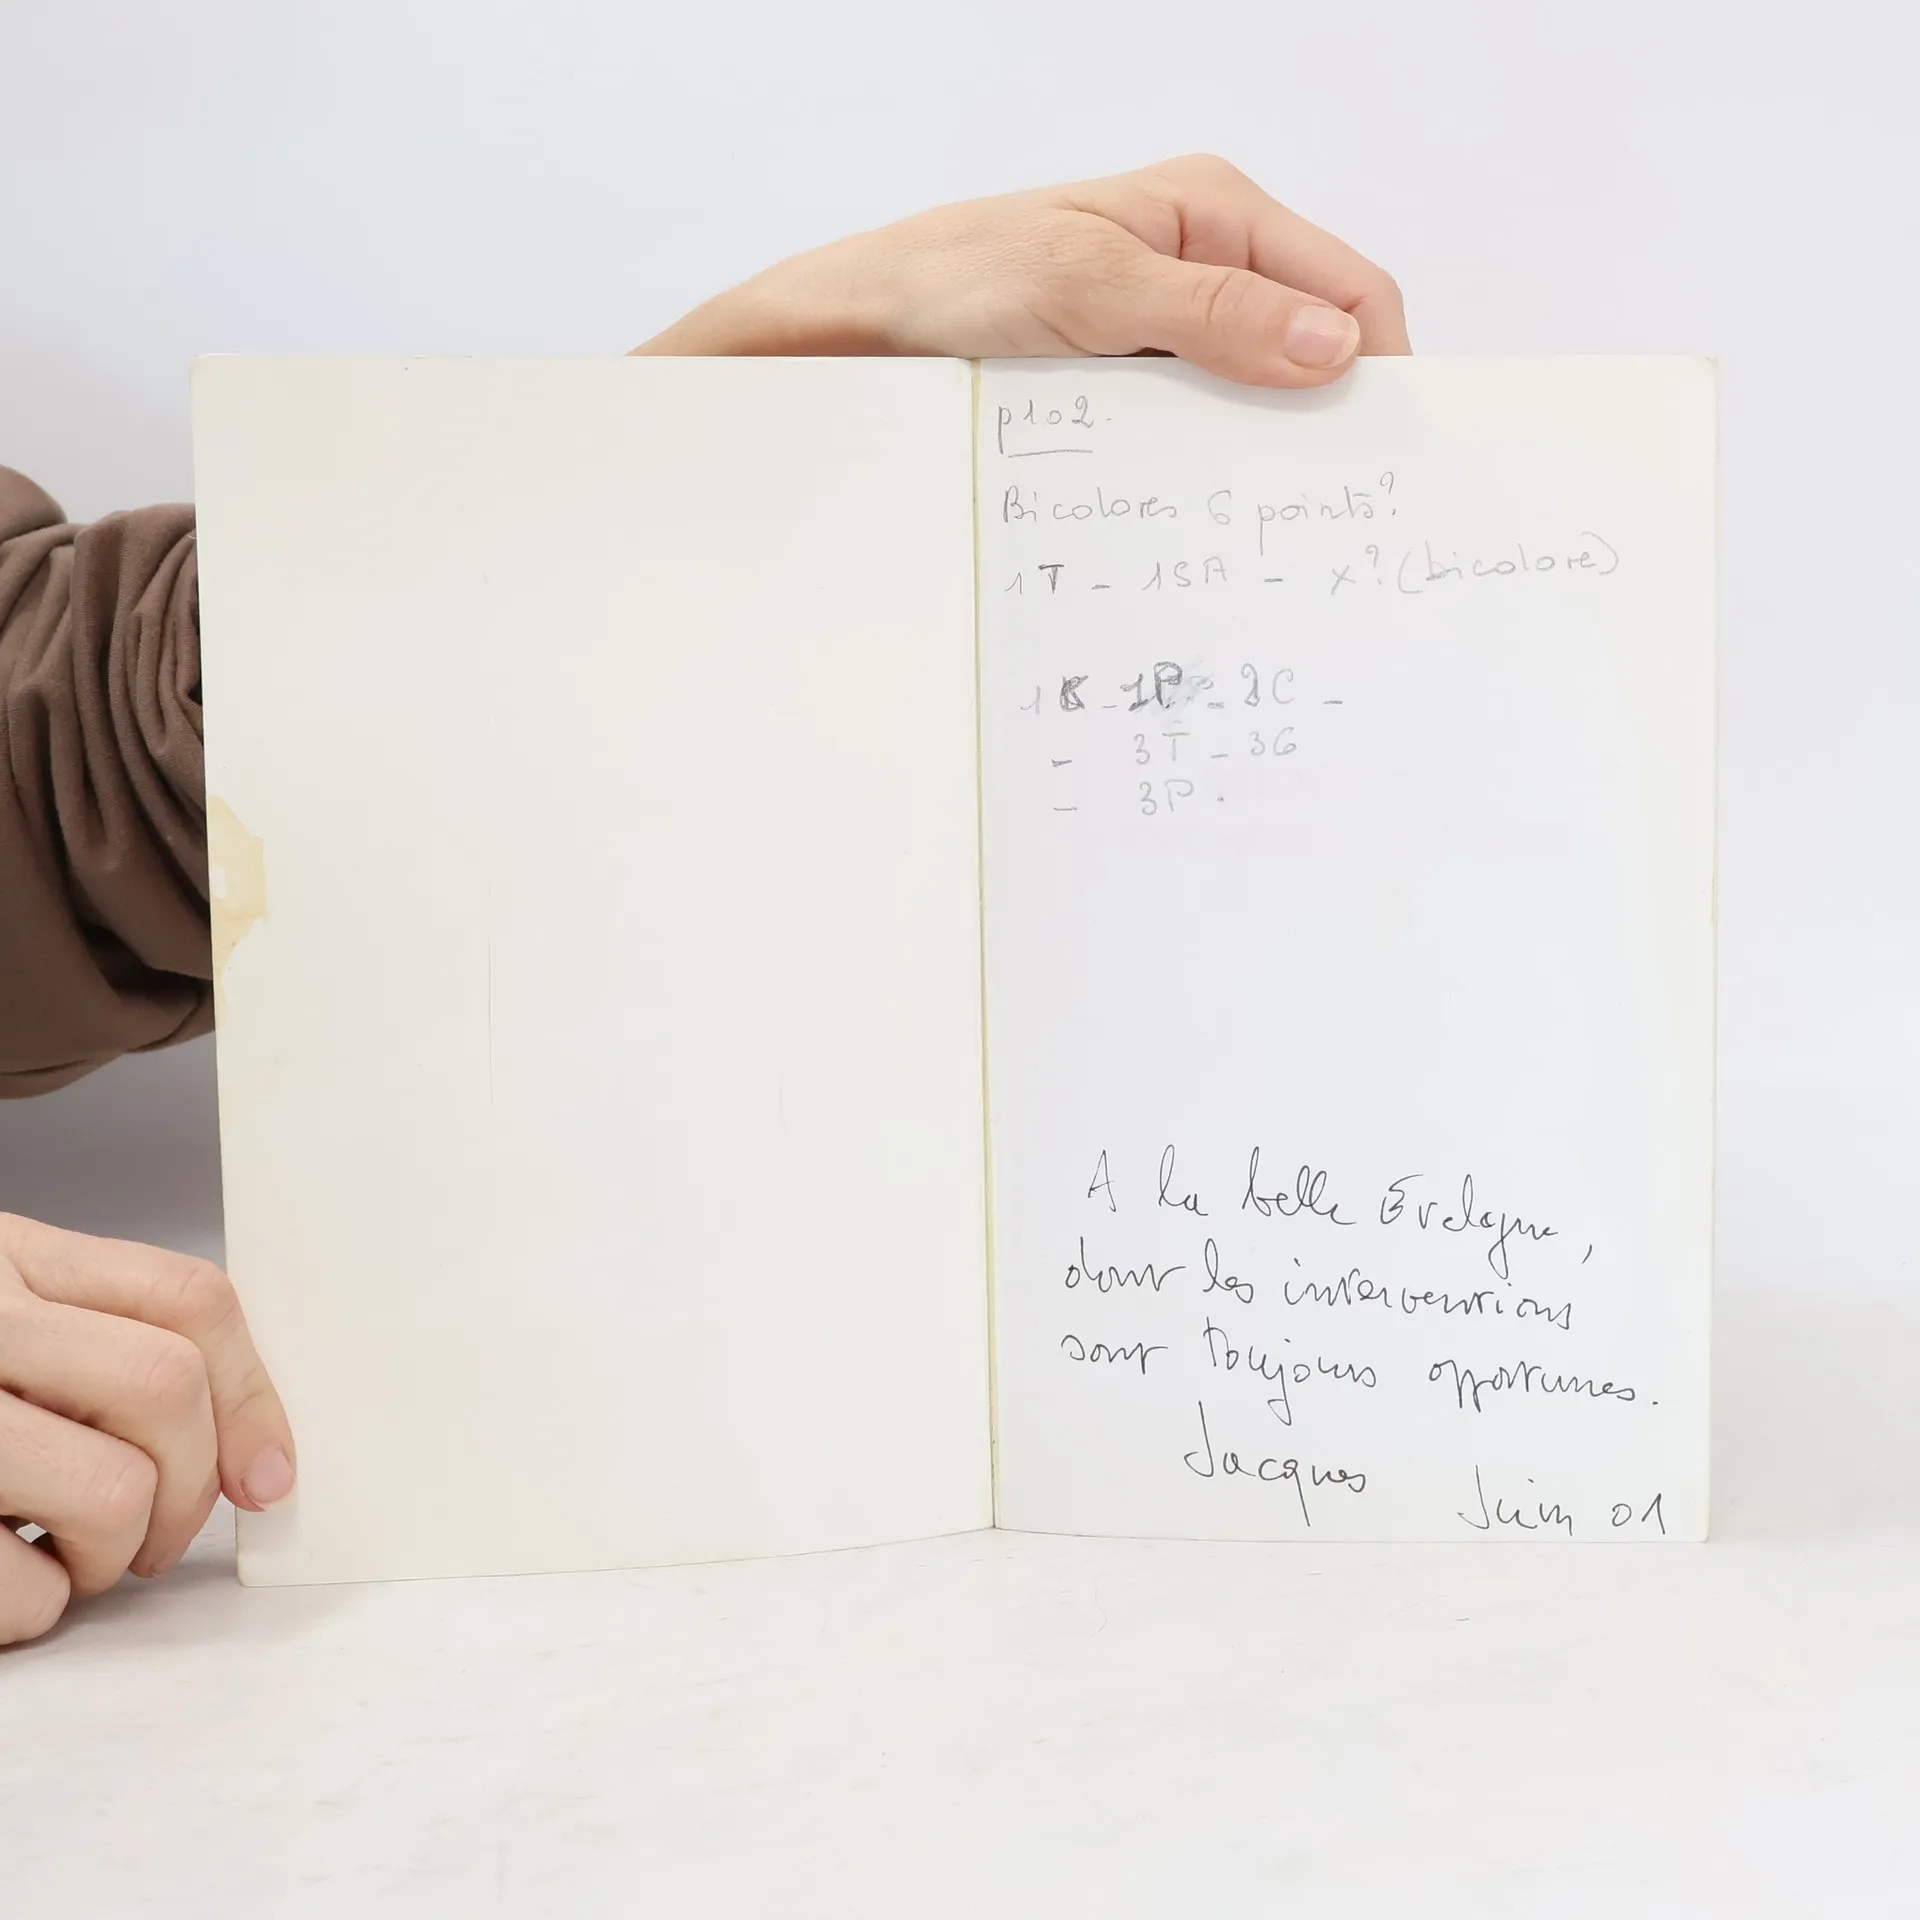 p102.
Bicolores 6 points?
1T - 1SA - x? (bicolore)
1K - 1P - 2C -
- 3T - 3C
- 3P.
A la belle Évelyne,
dont les interventions
sont toujours opportunes.
Jacques
Juin 01